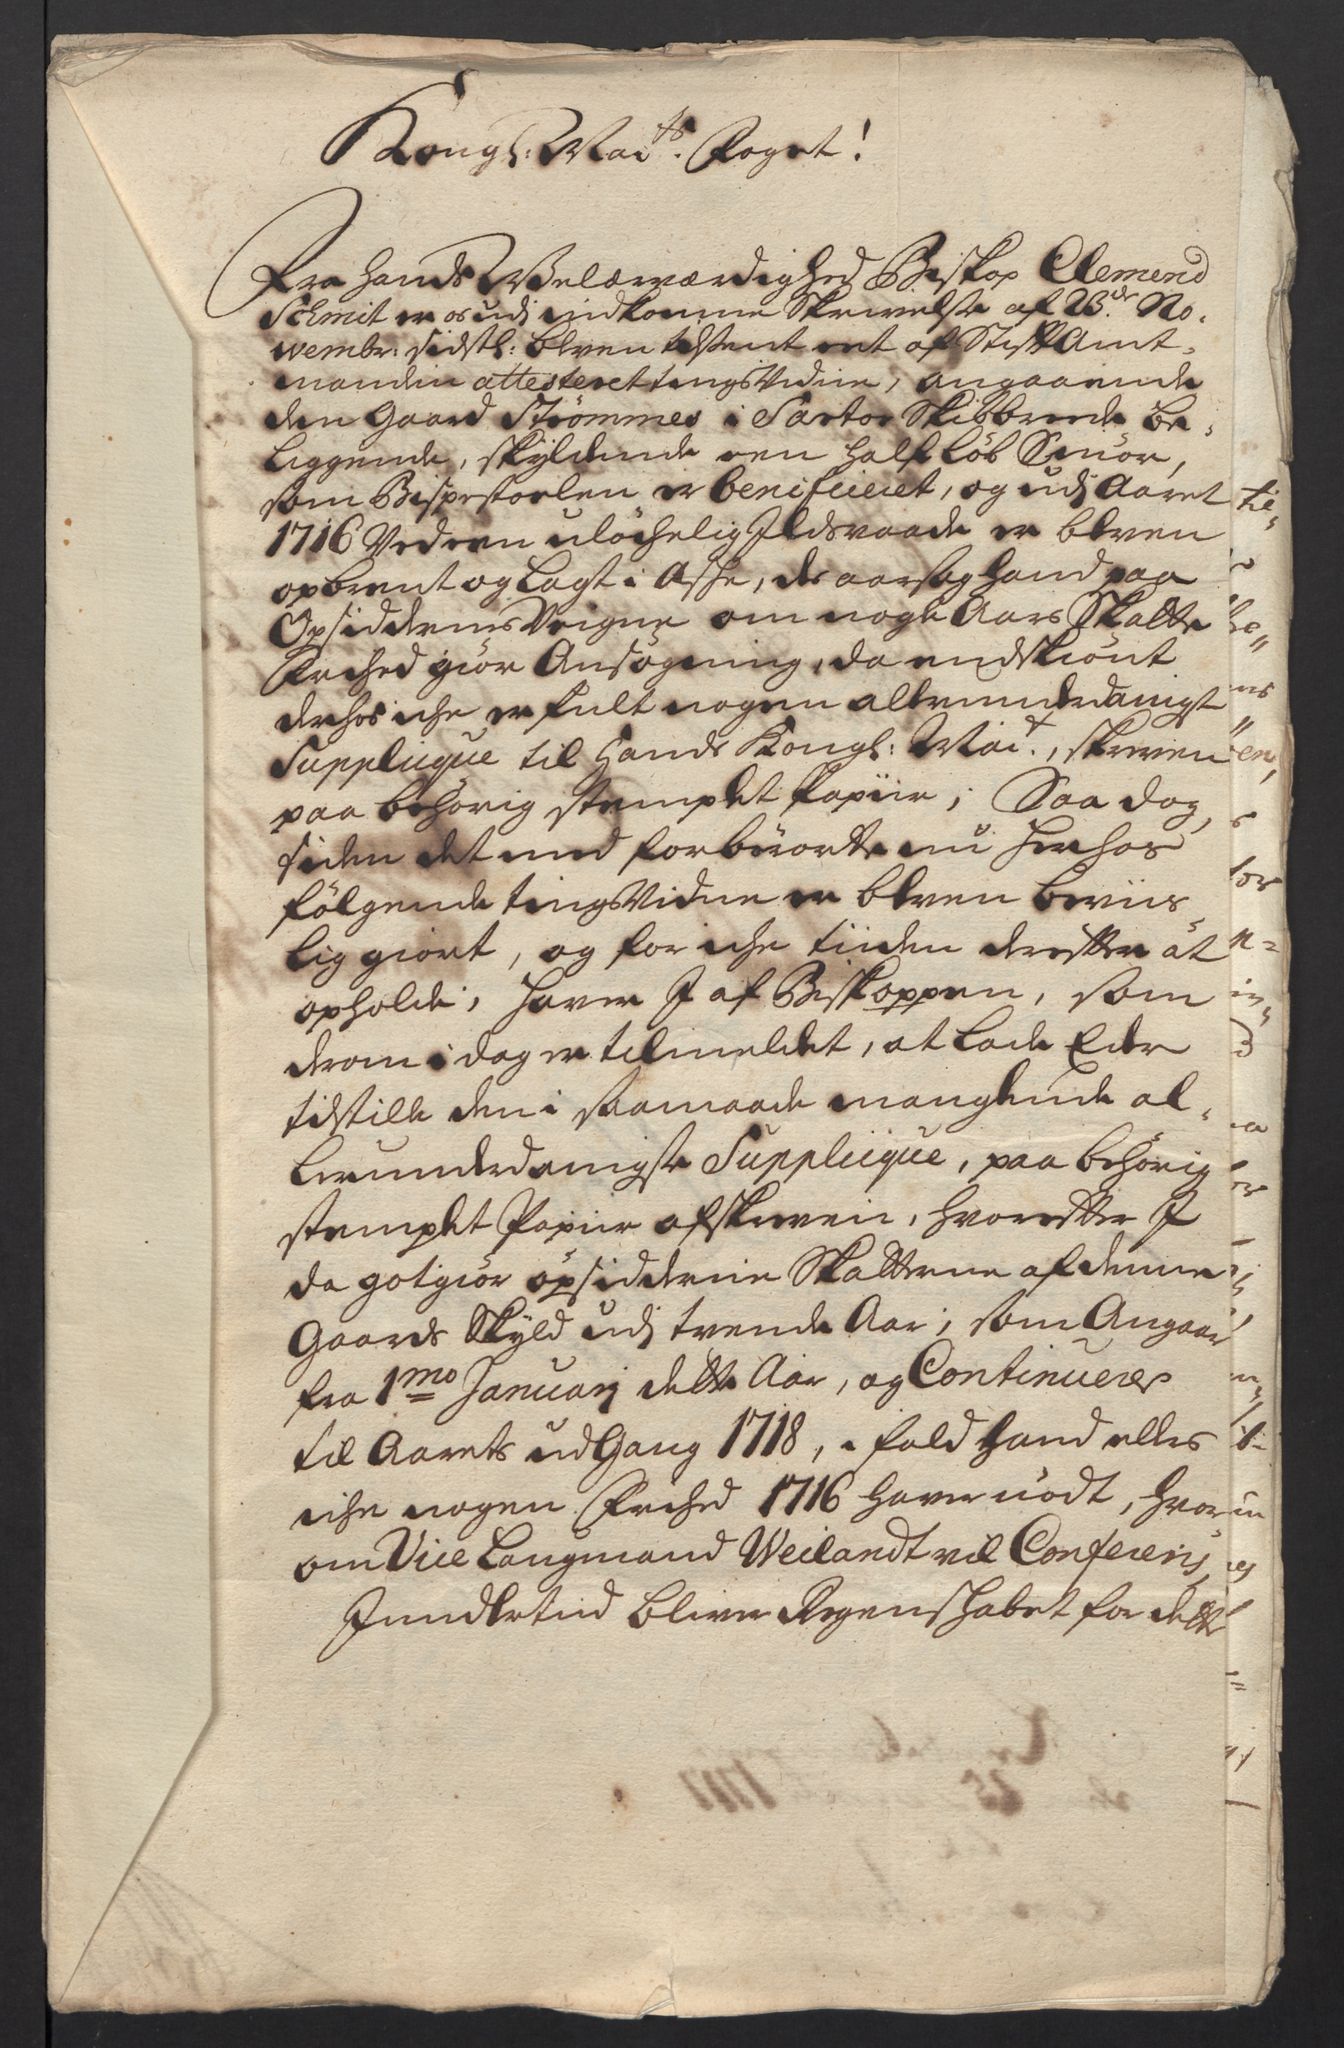 Kongl: Maits. Foget!
Fra Hands Welærværdighed Biskop Clemend
Schmit er os udj indkomme Skrivelse af 13de No-
vembr: sidstl: bleven tilsent eet af Stift Amt-
manden attesteret tingsVidne, angaaende
den Gaard Strömmes i Sartor Skibbrede be-
liggende, skyldende een half Löb Smör,
som Bispestoelen er beneficieret, og udj Aaret
1716 Ved een ulöchelig Ildsvaade er bleven
opbrent og Lagt i Asche, des aarsag hand paa
Opsiddernis Veigne om nogle Aars Skatte
Frihed giör Ansögning, da endskiönt
derhos iche er fult nogen allerunderdanigst
Supplicqve til Hands Kongl: Mait., skreven
paa behörig stemplet Papiir; Saa dog,
siden det med forberörte nu herhos
fölgende tingsVidne er bleven beviis-
lig giort, og for iche tiiden derefter at
opholde, haver I af Biskoppen, som
derom i dag er tilmeldet, at lade Eder
tilstille den i saamaade manglende al-
lerunderdanigste Supplicqve, paa behörig
stemplet Papiir afskreven, hvorefter I
da gotgiör opsidderne Skatterne af denne
Gaards Skyld udj trende Aar, som Angaar
fra 1mo Januarj dette Aar, og Continuerer
til Aarets udGang 1718, i fald hand ellers
iche nogen Frihed 1716 haver nödt, hvor
om Vice Laugmand Weilandt vil Conferiris,
Imidlertid bliver Regenschabet for dette